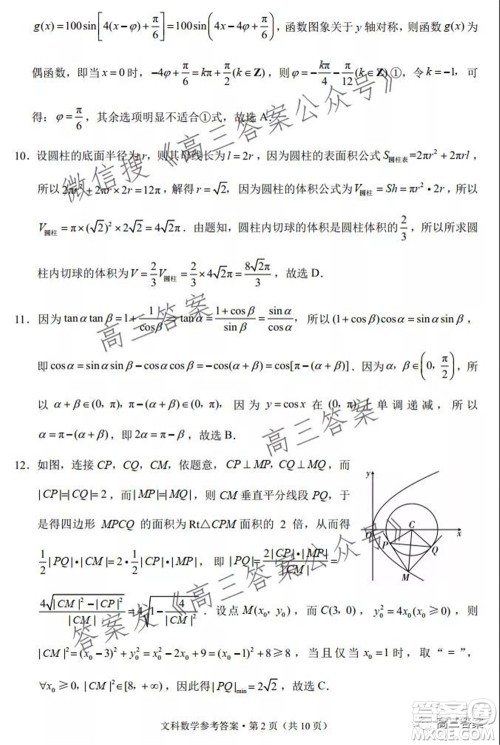 g(x)=100sin[4(x-φ)+π/6]=100sin(4x-4φ+π/6)，函数图象关于 y 轴对称，则函数 g(x) 为
偶函数，即当 x=0 时，-4φ+π/6=kπ+π/2(k∈Z)，则 φ=-kπ/4-π/12(k∈Z)①，令 k=-1，可
得：φ=π/6，其余选项明显不适合①式，故选 A．
10．设圆柱的底面半径为 r，则其母线长为 l=2r，因为圆柱的表面积公式 S圆柱表=2πr²+2πrl，
所以 2πr²+2πr·2r=12π，解得 r=√2，因为圆柱的体积公式为 V圆柱=Sh=πr²·2r，所以
V圆柱=π×(√2)²×2√2=4√2π．由题知，圆柱内切球的体积是圆柱体积的 2/3，所以所求圆
柱内切球的体积为 V=2/3 V圆柱=2/3×4√2π=8√2π/3，故选 D．
11．因为 tanα tanβ=1+1/cosβ=(1+cosβ)/cosβ，(1+cosβ)/sinβ=sinα/cosα，所以 (1+cosβ)cosα=sinα sinβ，
即 cosα=sinα sinβ-cosα cosβ=-cos(α+β)=cos[π-(α+β)]．因为 α，β∈(0，π/2)，所
以 α+β∈(0，π)，π-(α+β)∈(0，π)，因为 y=cosx 在 (0，π) 上单调递减，所以
α=π-(α+β)，即 2α=π-β，故选 B．
12．如图，连接 CP，CQ，CM，依题意，CP⊥MP，CQ⊥MQ，而
|CP|=|CQ|=2，而 |MP|=|MQ|，则 CM 垂直平分线段 PQ，于
是得四边形 MPCQ 的面积为 Rt△CPM 面积的 2 倍，从而得
1/2|PQ|·|CM|=2·1/2|CP|·|MP|，即 |PQ|=2|CP|·|MP|/|CM|=
4√(|CM|²-|CP|²)/|CM|=4√(1-4/|CM|²)．设点 M(x₀，y₀)，而 C(3，0)，y₀²=4x₀(x₀≥0)，则
|CM|²=(x₀-3)²+y₀²=x₀²-2x₀+9=(x₀-1)²+8≥8，当且仅当 x₀=1 时，取 “=”，
∀x₀≥0，|CM|²∈[8，+∞)，因此得 |PQ|min=2√2，故选 C．
y
O
C
x
P
Q
M
文科数学参考答案·第 2 页（共 10 页）
微信搜《高三答案公众号》
高三答案
高三答案
答案发《高三答案公众号》
高三答案